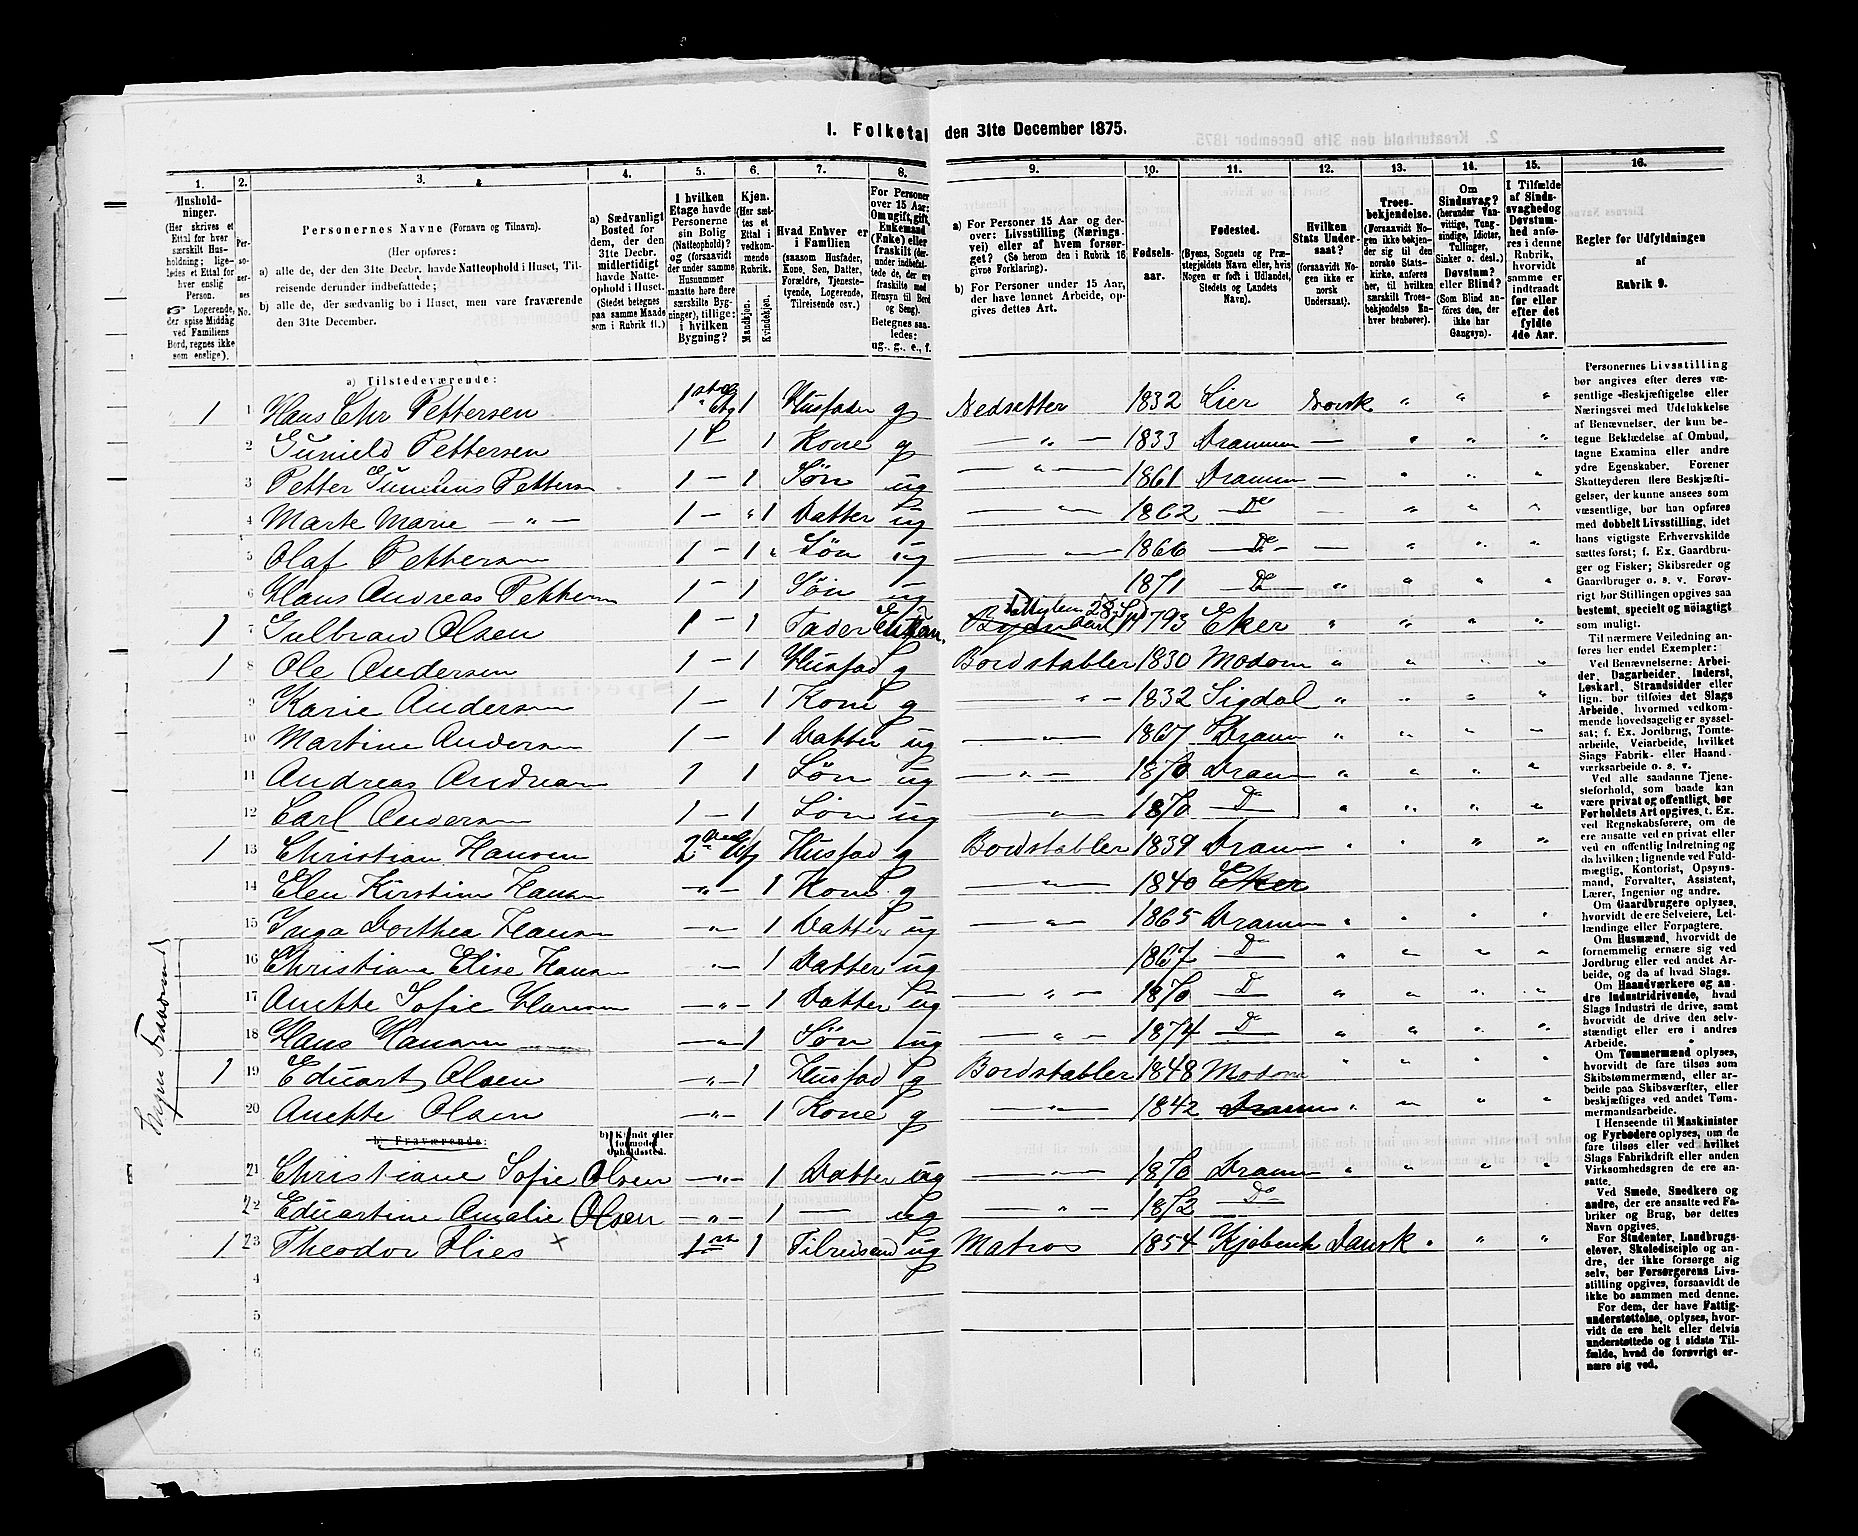 1. Folketal den 31te December 1875.
1. 2. 3. 4. 5. 6. 7. 8. 9. 10. 11. 12. 13. 14. 15. 16.
Husholdninger.
(Her skrives et
Ettal for hver
særskilt Husholdning;
ligeledes et Ettal for
hver enslig
Person.
Logerende,
der spise Middag
ved Familiens
Bord, regnes ikke
som enslige).
Personernes No.
Personernes Navne (Fornavn og Tilnavn).
(Her opføres:
a) alle de, der den 31te Decbr. havde Natteophold i Huset, Tilreisende
derunder indbefattede;
b) alle de, der sædvanlig bo i Huset, men vare fraværende
den 31te December.
a) Sædvanligt
Bosted for
dem, der den
31te Decbr.
midlertidigt
havde Natteophold
i Huset.
(Stedet betegnes
paa samme Maade
som i Rubrik 11.)
I hvilken
Etage havde
Personerne
sin Bolig
(Natteophold)?
og (forsaavidt
der under samme
Husnummer
maatte høre flere
særskilte Bygninger),
tillige:
i hvilken
Bygning?
Kjøn.
(Her sættes
et
Ettal i
vedkommende
Rubrik.
Mandkjøn. Kvindekjøn.
Hvad Enhver er
i Familien
(saasom Husfader,
Kone, Søn, Datter,
Forældre, Tjenestetyende,
Logerende,
Tilreisende osv.)
For Personer
over 15 Aar:
Om ugift, gift,
Enkemand
(Enke) eller
fraskilt
Betegnes saaledes:
ug., g., e., f.
a) For Personer 15 Aar og derover:
Livsstilling (Næringsvei)
eller af hvem forsørget?
(Se herom den i Rubrik 16
givne Forklaring).
b) For Personer under 15 Aar,
der have lønnet Arbeide, opgives
dettes Art.
Fødselsaar.
Fødested.
(Byens, Sognets og Præstegjeldets
Navn eller, hvis
Nogen er født i Udlandet,
Stedets og Landets
Navn).
Hvilken
Stats Undersaat?
(forsaavidt Nogen
ikke er
norsk
Undersaat).
Troesbekjendelse.
(Forsaavidt Nogen
ikke bekjender
sig til den
norske Statskirke,
anføres
her, til hvilken
særskilt Troesbekjendelse
Enhver
henhører).
Om
Sindssvag?
(herunder Vanvittige,
Tungsindige,
Idioter,
Tullinger,
Sinker o. desl.)
Døvstum?
eller Blind?
(Som Blind anføres
den, der
ikke har
Gangsyn).
I Tilfælde
af Sindssvaghed
og
Døvstumhed
anføres
i denne
Rubrik,
hvorvidt
samme er
indtraadt
før eller
efter det
fyldte
4de Aar.
Regler for Udfyldningen
af
Rubrik 9.
a) Tilstedeværende:
1 1 Hans Chr Pettersen 1 Husfader g Nedsetter 1832 Lier Norsk
2 Gunield Pettersen 1 1 Kone g — " — 1833 Drammen
3 Petter Gunelius Petters 1 — 1 Søn ug — " — 1861 Drammen
4 Marte Marie — " — 1 — 1 Datter ug " 1862 Do
5 Olaf Pettersen 1 — 1 Søn ug " 1866 Do
6 Hans Andreas Pettersen 1 — 1 Søn ug 1871 Do
1 7 Gulbran Olsen 1 — 1 Fader Enkem. 1793 Eker "
1 8 Ole Andersen 1 — 1 Husfad g Bordstabler 1830 Modom "
9 Karie Andersen 1 — 1 Kone g " — 1832 Sigdal "
10 Martine Andersen 1 — 1 Datter ug " 1867 Dram "
11 Andreas Andersen 1 1 Søn ug — " — 1870 Dram "
12 Carl Andersen 1 — 1 Søn ug " 1870 D "
1 13 Christian Hansen 2 Husfad g Bordstabler 1839 Dram "
14 Elen Kirstine Hansen " — 1 Kone g " 1840 Eker
15 Inga Dorthea Hansen " 1 Datter ug " 1865 Dramen "
16 Christiane Elise Hansen " — 1 Datter ug 1867 D "
17 Anette Sofie Hansen — " — 1 Datter ug — " — 1870 D "
18 Hans Hansen " 1 Søn ug — " — 1874 D "
1 19 Eduart Olsen — " — 1 Husfad g Bordstabler 1848 Modom "
20 Anette Olsen — " — 1 Kone g — " — 1842 Dramm "
b) Fraværende:
b) Kjendt eller
formodet
Opholdssted.
21 Christiane Sofie Olsen — " — 1 Datter ug " 1870 Dramm "
22 Eduartine Amalie Olsen — " — 1 — ug — " — 1872 Do
1 23 Theodor Flies × 1 1 Tilreisend ug Matros 1854 Kjøbenh Dansk "
4
5
6
Personernes Livsstilling
bør angives efter deres væsentlige
Beskjæftigelse eller
Næringsvei med Udelukkelse
af Benævnelser, der kun betegne
Beklædelse af Ombud,
tagne Examina eller andre
ydre Egenskaber. Forener
Skatteyderen flere Beskjæftigelser,
der kunne ansees som
væsentlige, bør han opføres
med dobbelt Livsstilling, idet
hans vigtigste Erhvervskilde
sættes først; f. Ex. Gaardbruger
og Fisker; Skibsreder og
Gaardbruger o. s. v. Forøvrigt
bør Stillingen opgives saa
bestemt, specielt og nøiagtigt
som muligt.
Til nærmere Veiledning anføres
her endel Exempler:
Ved Benævnelserne: Arbeider,
Dagarbeider, Inderst,
Løskarl, Strandsidder eller
lign. bør tilføies det Slags
Arbeide, hvormed vedkommende
hovedsagelig er sysselsat;
f. Ex. Jordbrug, Tomtearbeide,
Veiarbeide, hvilket
Slags Fabrik- eller Haandværksarbeide
o. s. v.
Ved alle saadanne Tjenesteforhold,
som baade kan
være privat og offentligt, bør
Forholdets Art opgives, t. Ex.
ved Regnskabsførere, om de
ere ansatte ved en privat eller
ved en offentlig Indretning og
da hvilken; lignende ved Fuldmægtig,
Kontorist, Opsynsmand,
Forvalter, Assistent,
Lærer, Ingeniør og andre.
Om Gaardbrugere oplyses,
hvorvidt de ere Selveiere, Leilændinge
eller Forpagtere.
Om Husmænd, hvorvidt de
fornemmelig ernære sig ved
Jordbrug eller ved andet Arbeide,
og da af hvad Slags.
Om Haandværkere og andre
Industridrivende, hvad
Slags Industri de drive, samt
hvorvidt de drive den selvstændigt
eller ere i andres
Arbeide.
Om Tømmermænd oplyses,
hvorvidt de fare tilsøs som
Skibstømmermænd, eller arbeide
paa Skibsværfter, eller
beskjæftiges ved andet Tømmermandsarbeide.
I Henseende til Maskinister
og Fyrbødere oplyses, om de
fare tilsøs eller ved hvilket
Slags Fabrikdrift eller anden
Virksomhedsgren de ere ansatte.
Ved Smede, Snedkere og
andre, der ere ansatte ved Fabriker
og Brug, bør dettes
Navn opgives.
For Studenter, Landbrugselever,
Skoledisciple og andre,
der ikke forsørge sig
selv, bør Forsørgerens Livsstilling
opgives, forsaavidt de
ikke bo sammen med denne.
For dem, der have Fattigunderstøttelse,
oplyses, hvorvidt
de ere helt eller delvis
understøttede og i sidste Tilfælde,
hvad de forøvrigt ernære
sig ved.